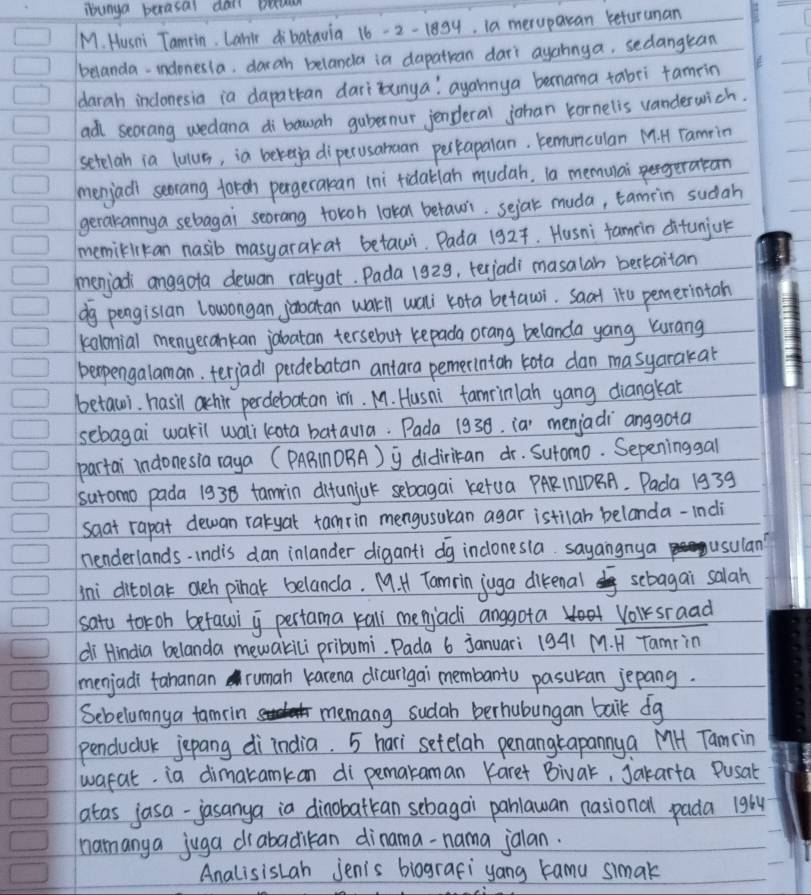 ibunya berasal dari
M. Husni Tamrin. Lahir di batavia 16 - 2 - 1894. Ia merupakan keturunan
belanda - indonesia. darah belanda ia dapatkan dari ayahnya, sedangkan
darah indonesia ia dapatkan dari ibunya! ayahnya bernama tabri tamrin
adl seorang wedana di bawah gubernur jenderal johan kornelis vanderwich.
setelah ia lulus, ia bekerja di perusahaan perkapalan. kemunculan M.H Tamrin
menjadi seorang tokoh pergerakan ini tidaklah mudah. Ia memulai pergerakan
gerakannya sebagai seorang tokoh lokal betawi. sejak muda, tamrin sudah
memikirkan nasib masyarakat betawi. Pada 1927. Husni tamrin ditunjuk
menjadi anggota dewan rakyat. Pada 1929, terjadi masalah berkaitan
dg pengisian lowongan jabatan wakil wali kota betawi. saat itu pemerintah
kolonial menyerahkan jabatan tersebut kepada orang belanda yang kurang
berpengalaman. terjadi perdebatan antara pemerintah kota dan masyarakat
betawi. hasil akhir perdebatan ini. M. Husni tamrinlah yang diangkat
sebagai wakil wali kota batavia. Pada 1938. ia menjadi anggota
partai indonesia raya (PARINDRA) y didirikan dr. Sutomo. Sepeninggal
sutomo pada 1938 tamrin ditunjuk sebagai ketua PARINDRA. Pada 1939
saat rapat dewan rakyat tamrin mengusukan agar istilah belanda - indi
nenderlands - indis dan inlander diganti dg indonesia. sayangnya usulan
ini ditolak oleh pihak belanda. M.H Tamrin juga dikenal sebagai salah
satu tokoh betawi y pertama kali menjadi anggota Volksraad
di Hindia belanda mewakili pribumi. Pada 6 Januari 1941 M.H Tamrin
menjadi tahanan rumah karena dicurigai membantu pasukan jepang.
Sebelumnya tamrin memang sudah berhubungan baik dg
penduduk jepang di india. 5 hari setelah penangkapannya MH Tamrin
wafat. ia dimakamkan di pemakaman Karet Bivak, Jakarta Pusat
atas jasa - jasanya ia dinobatkan sebagai pahlawan nasional pada 1964
namanya juga diabadikan dinama - nama jalan.
Analisislah jenis biografi yang kamu simak